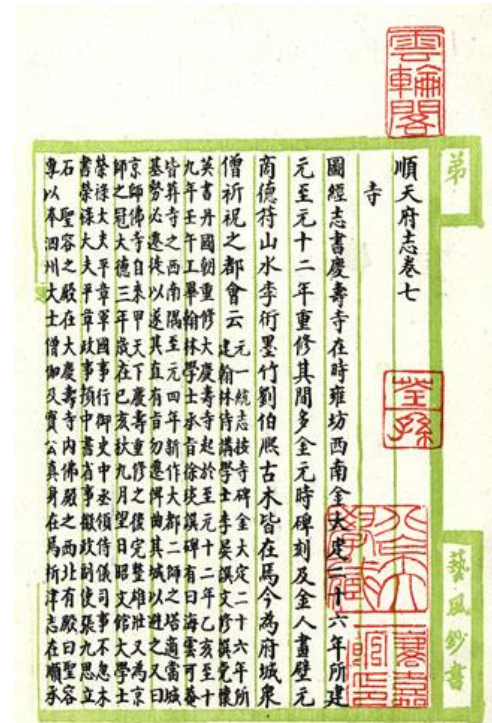 雲輪閣
弟
藝風鈔書
順天府志卷七
荃孫
寺
圖經志書慶壽寺在時雍坊西南金大建二十六年所建
元至元十二年重修其間多金元時碑刻及金人畫壁元
商德符山水李衎墨竹劉伯熙古木皆在焉今為府城衆
僧祈祝之都會云
元一統志按寺碑金大定二十六年所
建翰林侍講學士李晏撰文修撰党懷
英書丹國朝重修大慶壽寺起於至元十二年乙亥至十
九年壬午工畢翰林學士承旨徐琰撰碑有曰海雲可菴
皆葬寺之西南隅至元四年新作大都二師之塔適當城
基勢必遷徙以遂其直有旨勿遷俾曲其城以避之又曰
京師佛寺自來甲天下慶壽重修之後完整雄壯又為京
師之冠大德三年歲在己亥秋九月望日昭文館大學士
榮祿大夫平章軍國事行御史中丞領侍儀司事不忽木
書榮祿大夫平章政事領中書省事徽政副使張九思立
石 聖容之殿在大慶壽寺內佛殿之西北有殿曰聖容
專以奉泗州大士僧伽及寶公真身在焉析津志在順承